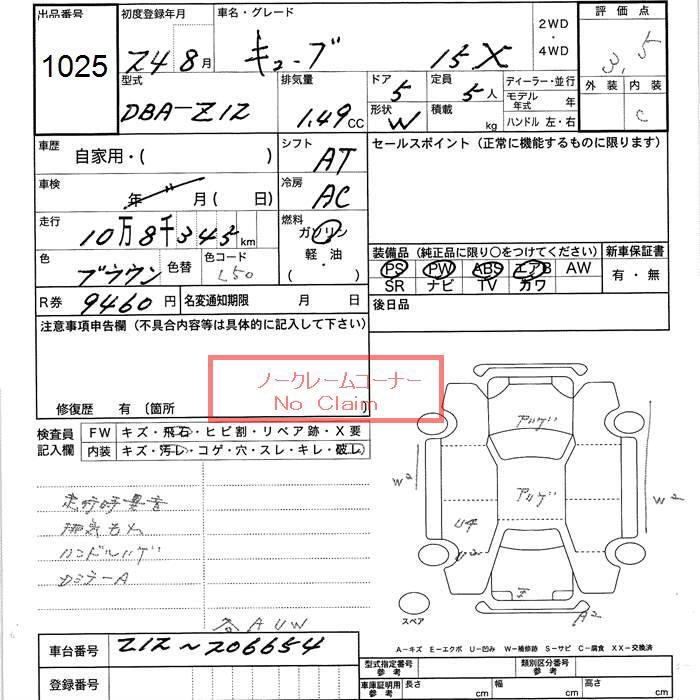 出品番号 初度登録年月 車名・グレード 2WD ・ 4WD 評価点
1025 Z4 8月 キューブ 15X 3.5
型式 排気量 ドア 定員 ディーラー・並行 外装 内装
DBA-Z12 1.49CC 5 5人 モデル年式 年 C
形状 W 積載 kg ハンドル 左・右
車歴 自家用・( ) シフト AT セールスポイント (正常に機能するものに限ります)
車検 年 月 ( 日) 冷房 AC
走行 10万8千345km 燃料 ガソリン 軽・油 ( ・ )
色 ブラウン 色替 色コード L50 装備品 (純正品に限り○をつけてください) 新車保証書
PS PW ABS エアB AW 有・無
SR ナビ TV カワ
R券 9460円 名変通知期限 月 日 後日品
注意事項申告欄 (不具合内容等は具体的に記入して下さい)
ノークレームコーナー
No Claim
修復歴 有 〔箇所
検査員記入欄 FW キズ・飛石・ヒビ割・リペア跡・X要
内装 キズ・汚レ・コゲ・穴・スレ・キレ・破レ
アルゲ
アルゲ
W2 W2
U4
U2
走行時異音
ハンドルハゲ
A2
スペア
各AUW
A-キズ E-エクボ U-凹み W-補修跡 S-サビ C-腐食 XX-交換済
車台番号 Z12~206654
登録番号
型式指定番号 参考 類別区分番号 参考
車庫証明用 参考 長さ cm 幅 cm 高さ cm